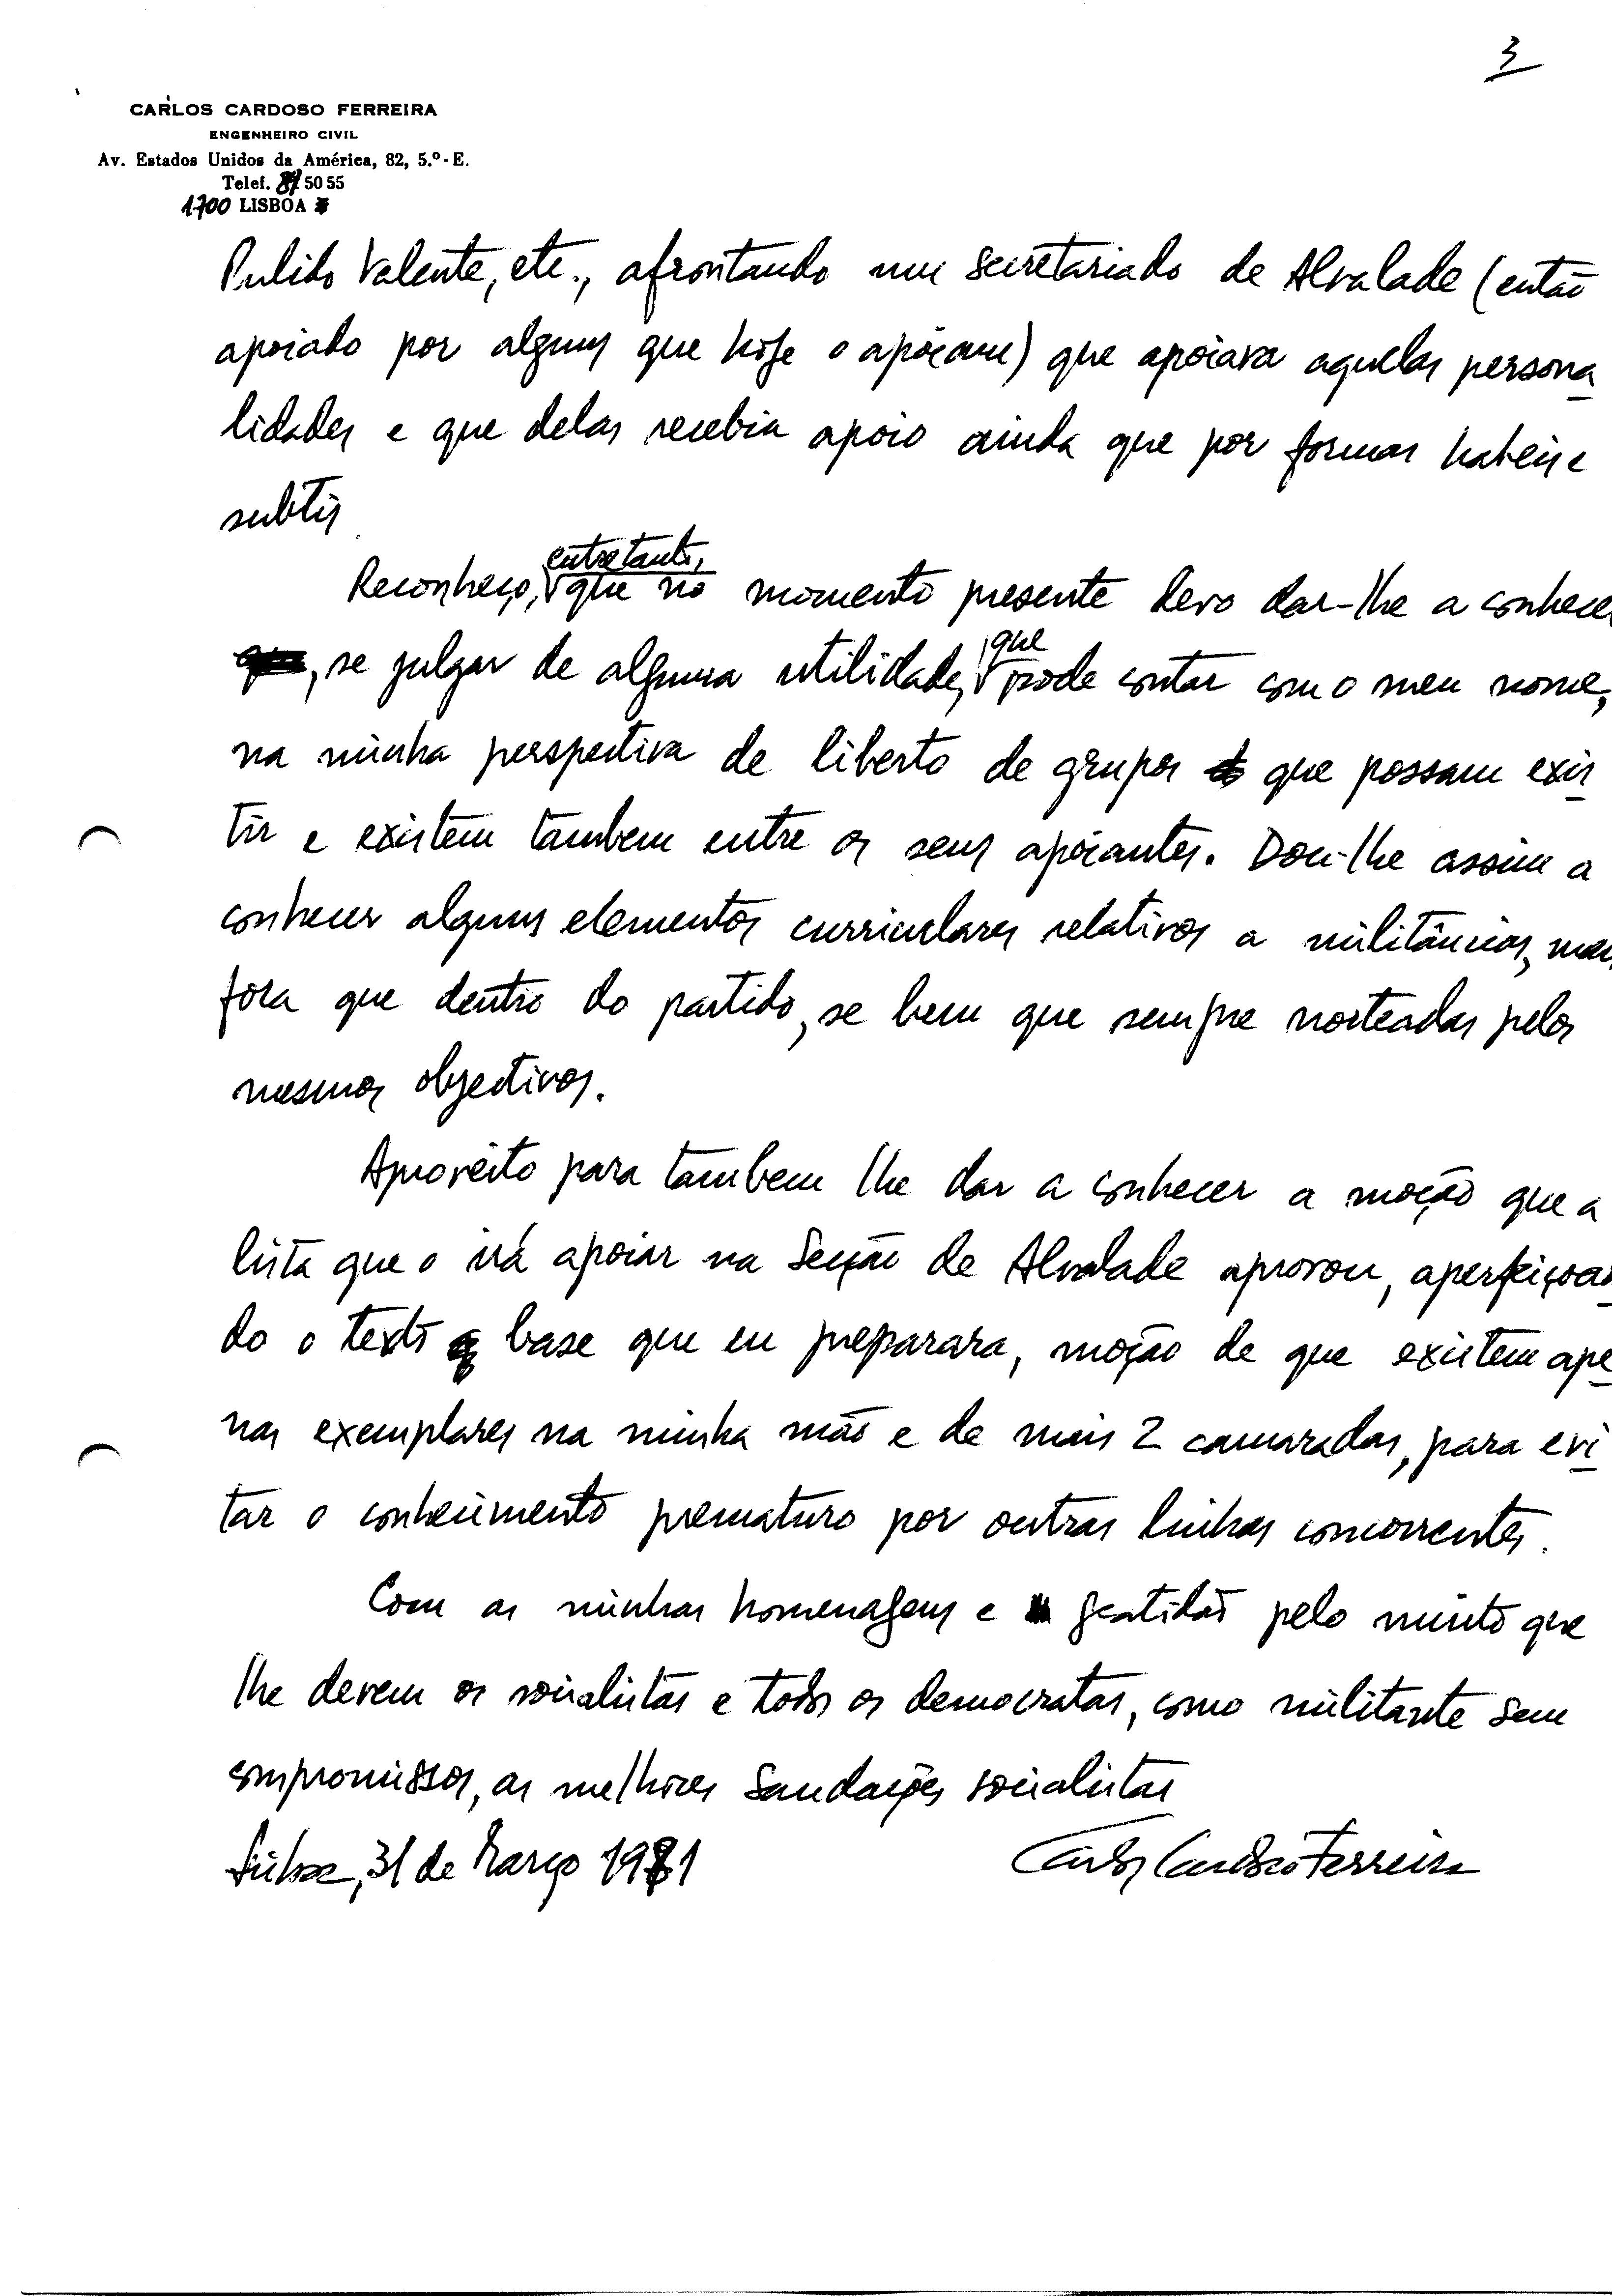 3
CARLOS CARDOSO FERREIRA
ENGENHEIRO CIVIL
Av. Estados Unidos da América, 82, 5.º-E.
Telef. 5055
1700 LISBOA
Pulido Valente, etc., afrontando um secretariado de Alvalade (então
apoiado por alguns que hoje o apoiam) que apoiava aquelas persona
lidades e que delas recebia apoio ainda que por formas habeis e
subtis
entretanto,
Reconheço, que no momento presente devo dar-lhe a conhecer
que
, se julgar de alguma utilidade, pode contar com o meu nome,
na minha perspectiva de liberto de grupos que possam exis
tir e existem tambem entre os seus apoiantes. Dou-lhe assim a
conhecer alguns elementos curriculares relativos a militâncias, mais
fora que dentro do partido, se bem que sempre norteadas pelos
mesmos objectivos.
Aproveito para tambem lhe dar a conhecer a moção que a
lista que o irá apoiar na Secção de Alvalade aprovou, aperfeiçoan
do o texto base que eu preparara, moção de que existem ape
nas exemplares na minha mão e de mais 2 camaradas, para evi
tar o conhecimento prematuro por outras linhas concorrentes.
Com as minhas homenagens e gratidão pelo muito que
lhe devem os socialistas e todos os democratas, como militante sem
compromissos, as melhores saudações socialistas
Lisboa, 31 de Março 1981
Carlos Cardoso Ferreira